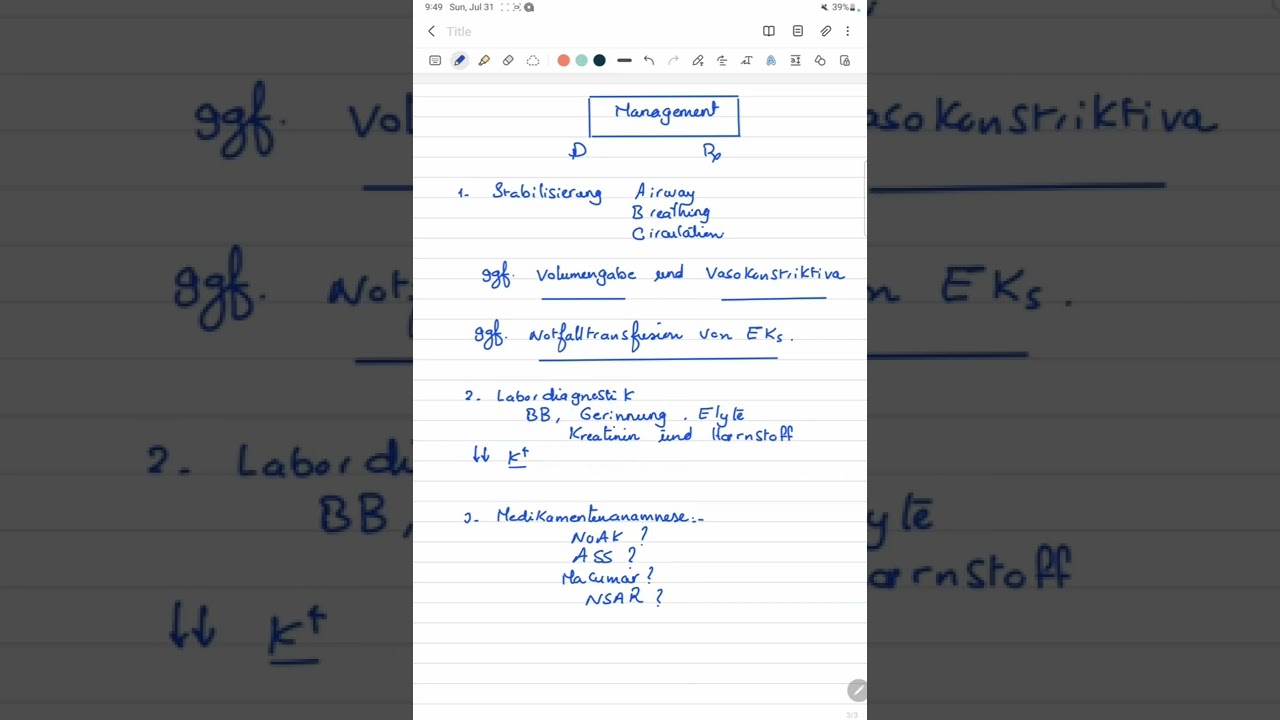 9:49 Sun, Jul 31 39%
Title
Management
D Rp
1- Stabilisierung Airway
Breathing
Circulation
ggf. Volumengabe und Vasokonstriktiva
ggf. Notfalltransfusion von EKs.
2. Labordiagnostik
BB, Gerinnung, Elyte
Kreatinin und Harnstoff
↓↓ K+
3- Medikamentenanamnese:-
NOAK ?
ASS ?
Macumar ?
NSAR ?
3/3